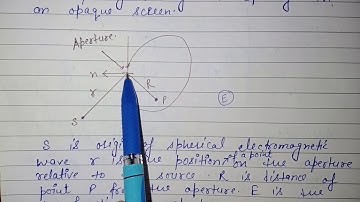 on opaque screen.
Aperture.
n
R
r
P
E
S
S is origin of spherical electromagnetic
wave r is the position of a point on the aperture
relative to source. R is distance of
point P from the aperture. E is the